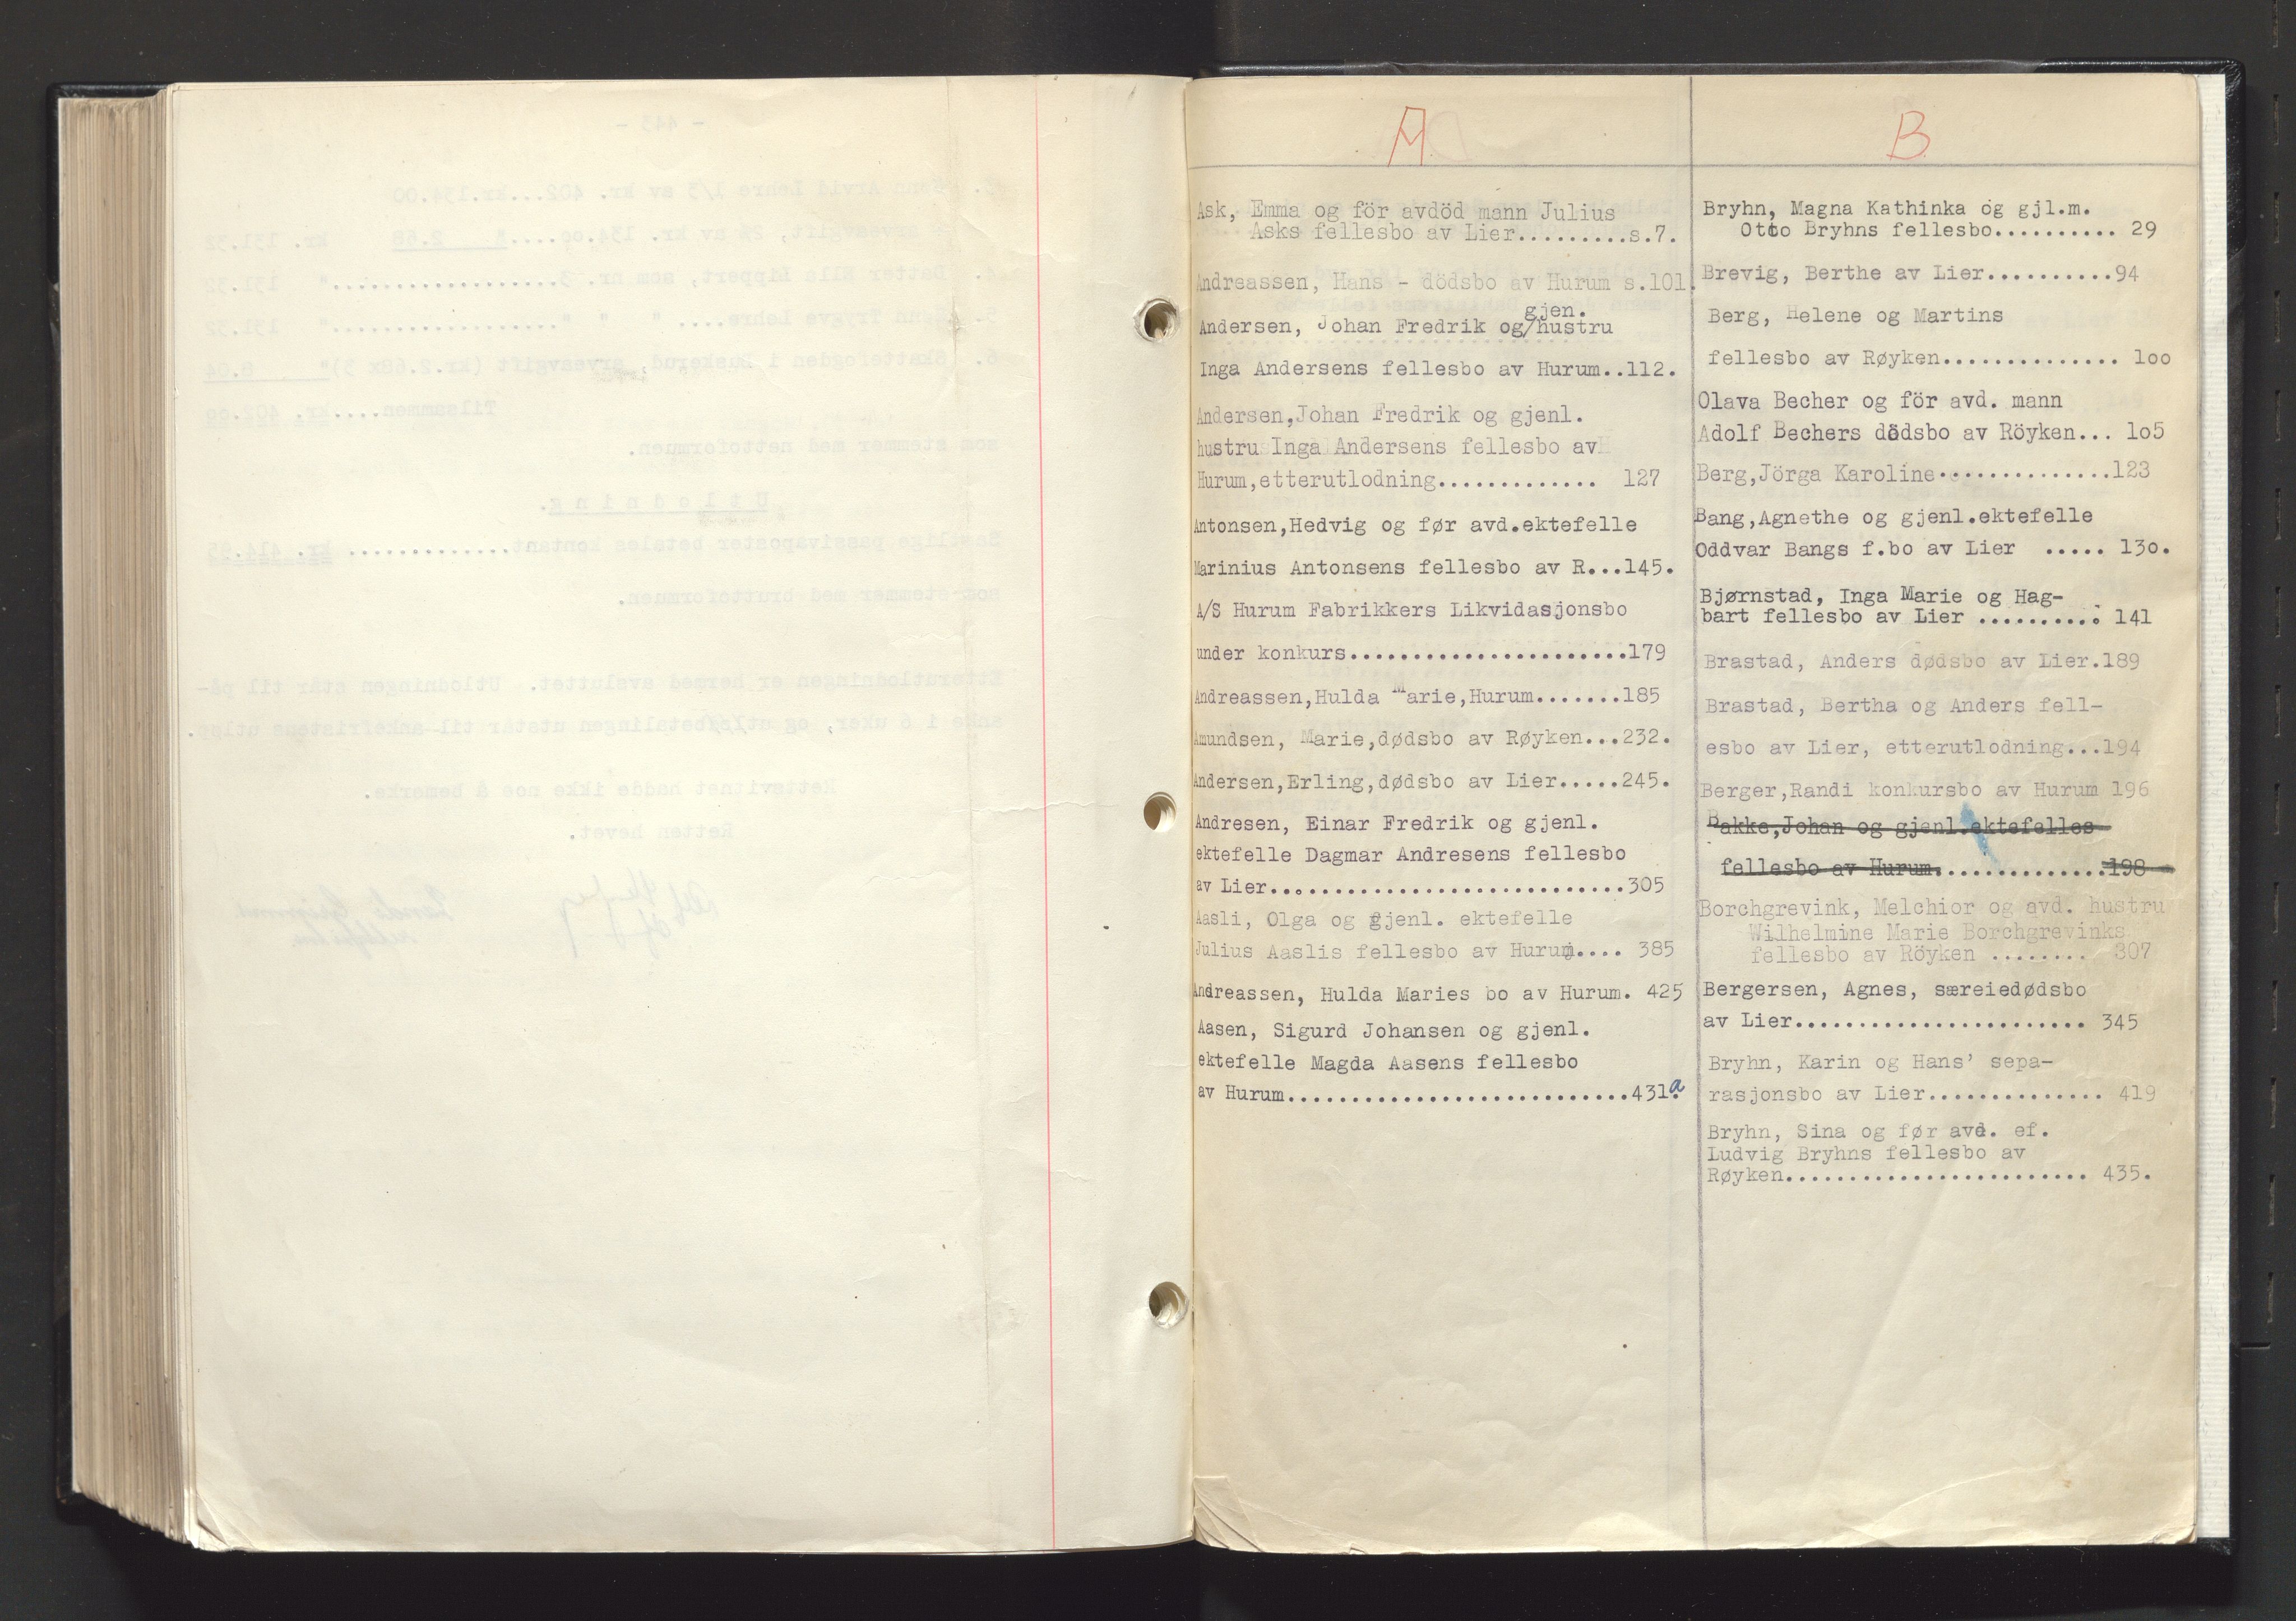 A
Ask, Emma og för avdöd mann Julius
Asks fellesbo av Lier.........s.7.
Andreassen, Hans - dödsbo av Hurum s.101.
gjen.
Andersen, Johan Fredrik og/hustru
Inga Andersens fellesbo av Hurum..112.
Andersen,Johan Fredrik og gjenl.
hustru Inga Andersens fellesbo av
Hurum,etterutlodning............. 127
Antonsen,Hedvig og før avd.ektefelle
Marinius Antonsens fellesbo av R...145.
A/S Hurum Fabrikkers Likvidasjonsbo
under konkurs......................179
Andreassen,Hulda Marie,Hurum.......185
Amundsen, Marie,dødsbo av Røyken...232.
Andersen,Erling,dødsbo av Lier.....245.
Andresen, Einar Fredrik og gjenl.
ektefelle Dagmar Andresens fellesbo
av Lier............................305
Aasli, Olga og gjenl. ektefelle
Julius Aaslis fellesbo av Hurum.... 385
Andreassen, Hulda Maries bo av Hurum. 425
Aasen, Sigurd Johansen og gjenl.
ektefelle Magda Aasens fellesbo
av Hurum...........................431a
B
Bryhn, Magna Kathinka og gjl.m.
Otto Bryhns fellesbo.......... 29
Brevig, Berthe av Lier..........94
Berg, Helene og Martins
fellesbo av Røyken.............. loo
Olava Becher og för avd. mann
Adolf Bechers dödsbo av Röyken... lo5
Berg,Jörga Karoline..............123
Bang,Agnethe og gjenl.ektefelle
Oddvar Bangs f.bo av Lier ..... 13o.
Bjørnstad, Inga Marie og Hag-
bart fellesbo av Lier .......... 141
Brastad, Anders dødsbo av Lier.189
Brastad, Bertha og Anders fell-
esbo av Lier, etterutlodning...194
Berger,Randi konkursbo av Hurum 196
Bakke,Johan og gjenl.ektefelles
fellesbo av Hurum..............198
Borchgrevink, Melchior og avd. hustru
Wilhelmine Marie Borchgrevinks
fellesbo av Röyken ........ 307
Bergersen, Agnes, særeiedødsbo
av Lier....................... 345
Bryhn, Karin og Hans' sepa-
rasjonsbo av Lier.............. 419
Bryhn, Sina og før avd. ef.
Ludvig Bryhns fellesbo av
Røyken........................ 435.